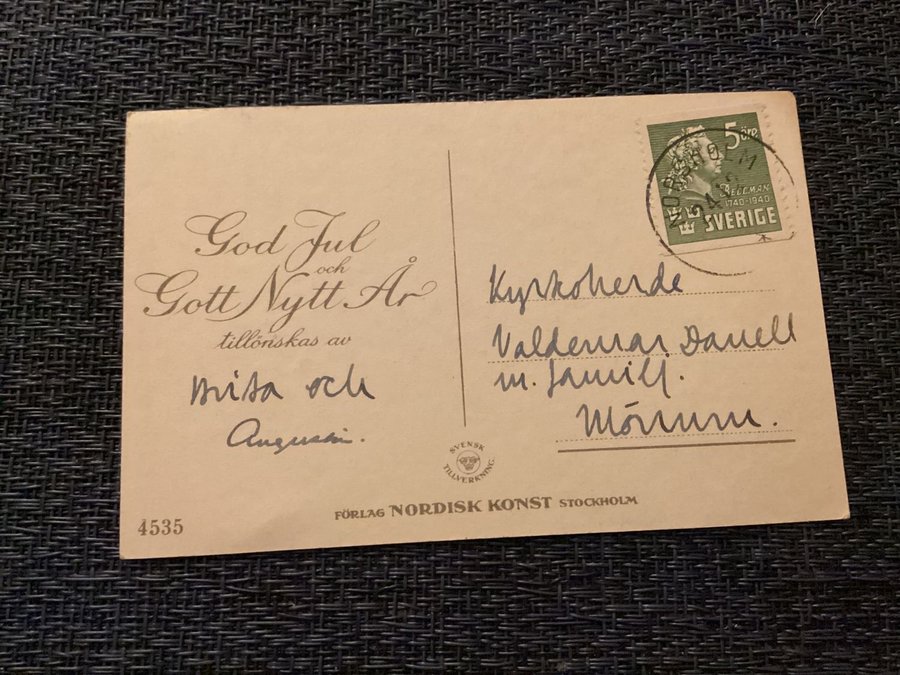 God Jul
och
Gott Nytt År
tillönskas av
Brita och
4535
SVENSK
TILLVERKNING
FÖRLAG NORDISK KONST STOCKHOLM
5 öre
BELLMAN
1740-1940
SVERIGE
NORSHOLM
Kyrkoherde
Valdemar Danell
m. familj.
Mörrum.